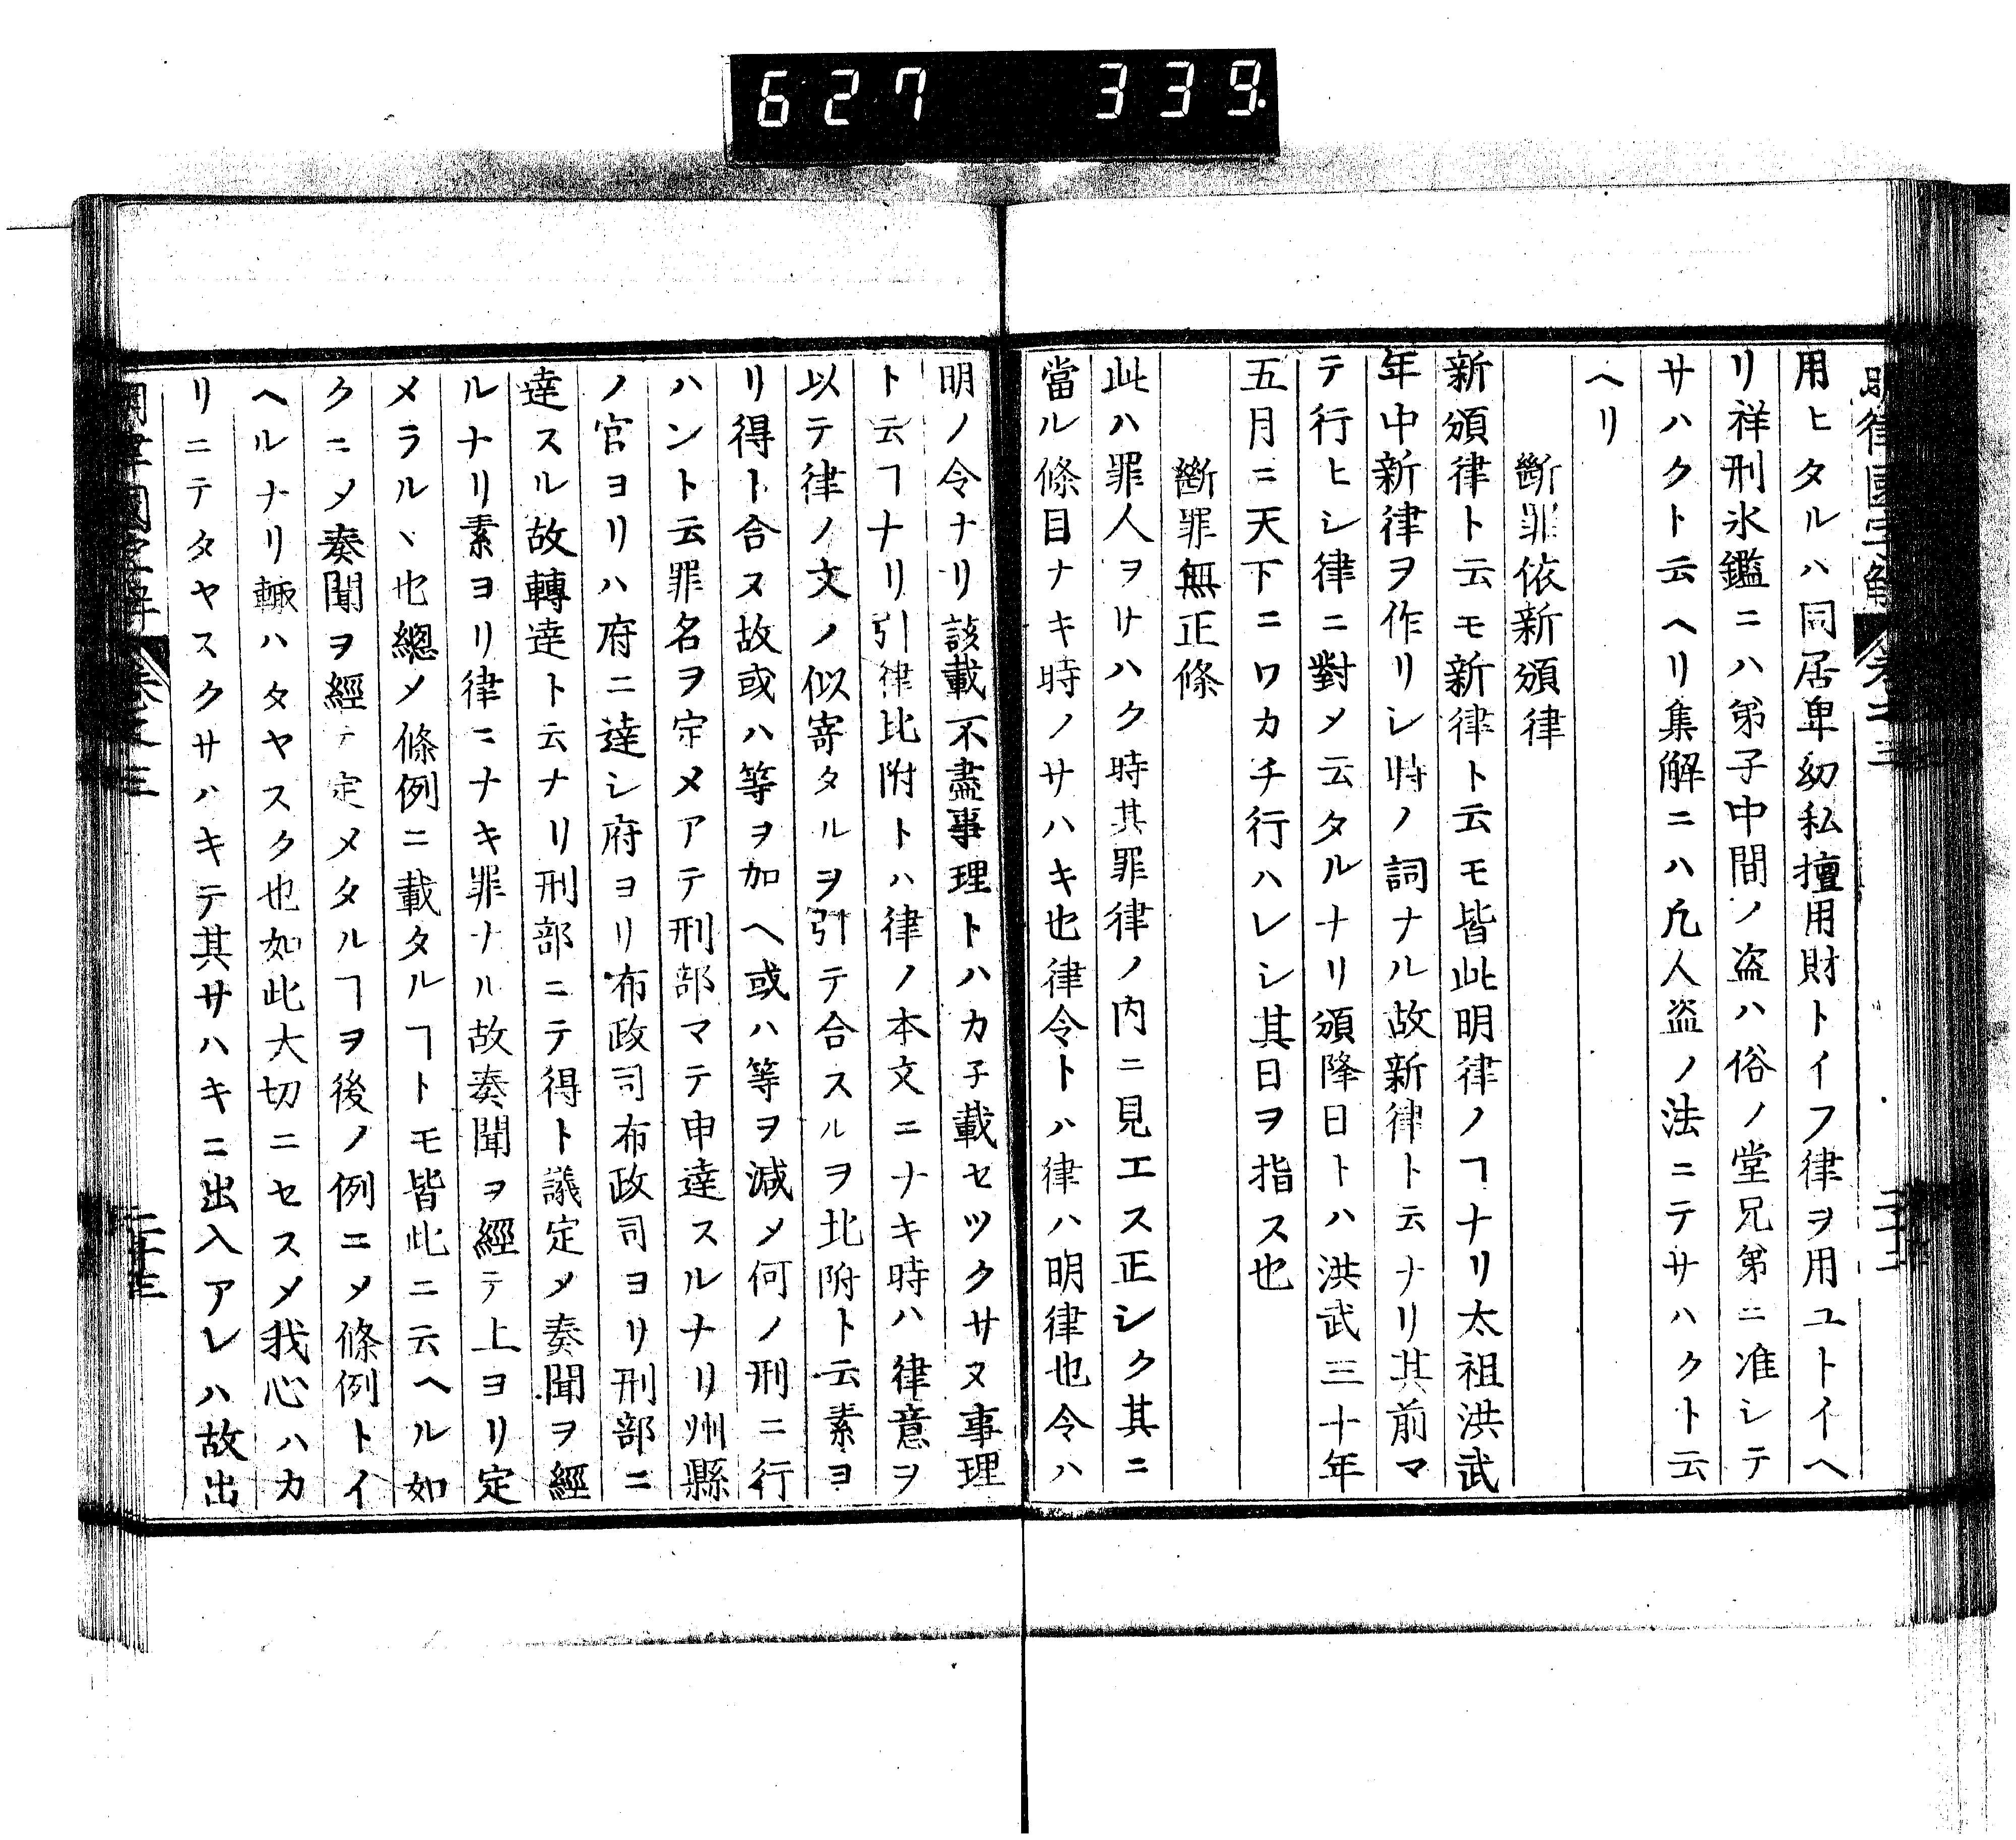 627 339.
用ヒタルハ同居卑幼私擅用財トイフ律ヲ用ユトイヘ
リ祥刑氷鑑ニハ弟子中間ノ盗ハ俗ノ堂兄弟ニ准シテ
サハクト云ヘリ集解ニハ凡人盗ノ法ニテサハクト云
ヘリ
斷罪依新頒律
新頒律ト云モ新律ト云モ皆此明律ノヿナリ太祖洪武
年中新律ヲ作リシ時ノ詞ナル故新律ト云ナリ其前マ
テ行ヒシ律ニ對メ云タルナリ頒降日トハ洪武三十年
五月ニ天下ニワカチ行ハレシ其日ヲ指ス也
斷罪無正條
此ハ罪人ヲサハク時其罪律ノ内ニ見エス正シク其ニ
當ル條目ナキ時ノサハキ也律令トハ律ハ明律也令ハ
明ノ令ナリ該載不盡事理トハカ子載セツクサヌ事理
ト云ヿナリ引律比附トハ律ノ本文ニナキ時ハ律意ヲ
以テ律ノ文ノ似寄タルヲ引テ合スルヲ比附ト云素ヨ
リ得ト合ヌ故或ハ等ヲ加ヘ或ハ等ヲ減メ何ノ刑ニ行
ハント云罪名ヲ定メアテ刑部マテ申達スルナリ州縣
ノ官ヨリハ府ニ達シ府ヨリ布政司布政司ヨリ刑部ニ
達スル故轉達ト云ナリ刑部ニテ得ト議定メ奏聞ヲ經
ルナリ素ヨリ律ニナキ罪ナル故奏聞ヲ經テ上ヨリ定
メラルヽ也總メ條例ニ載タルヿトモ皆此ニ云ヘル如
クニメ奏聞ヲ經テ定メタルヿヲ後ノ例ニメ條例トイ
ヘルナリ輙ハタヤスク也如此大切ニセスメ我心ハカ
リニテタヤスクサハキテ其サハキニ出入アレハ故出